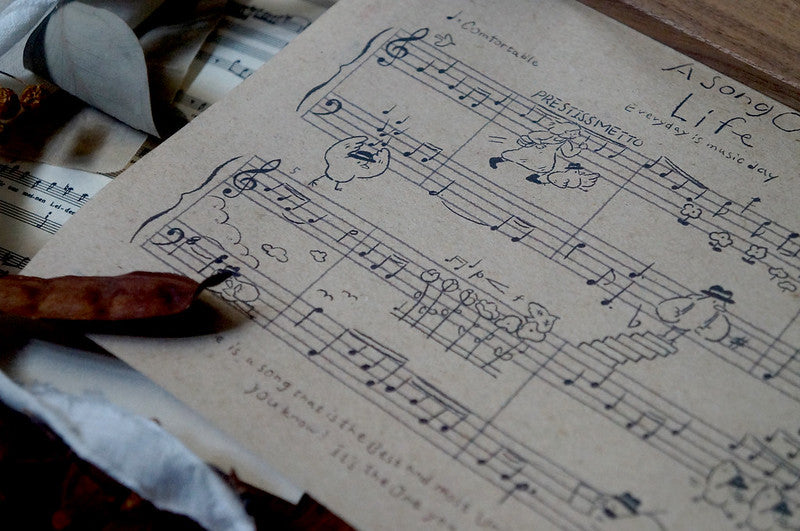 A Song O
Life
Everyday is music day
Comfortable
PRESTISSMETTO
5
is a song that is the Best and most
you know? It's the One